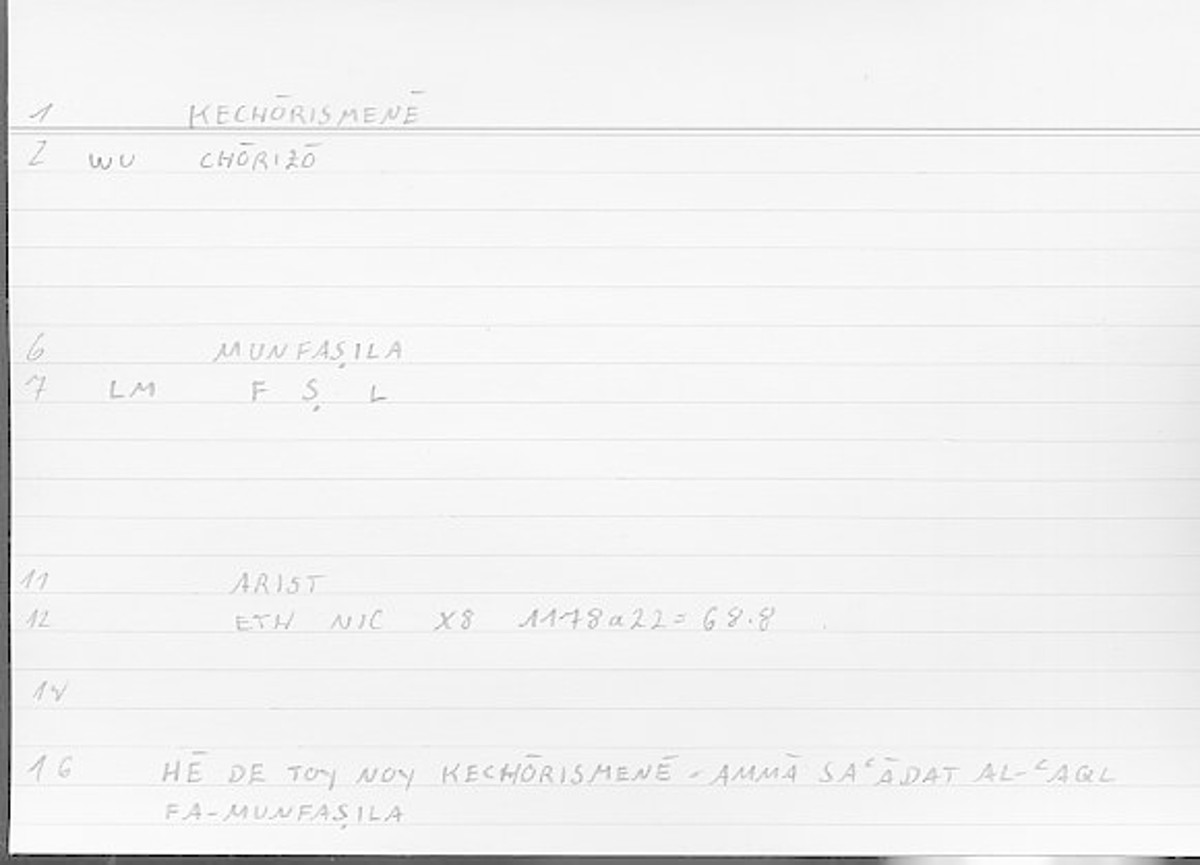 1 KECHŌRISMENĒ
2 WU CHŌRIZŌ
6 MUNFAṢILA
7 LM F Ṣ L
11 ARIST
12 ETH NIC X8 1178a22=68.8
14
16 HĒ DE TOY NOY KECHŌRISMENĒ - AMMĀ SAʿĀDAT AL-ʿAQL
FA-MUNFAṢILA